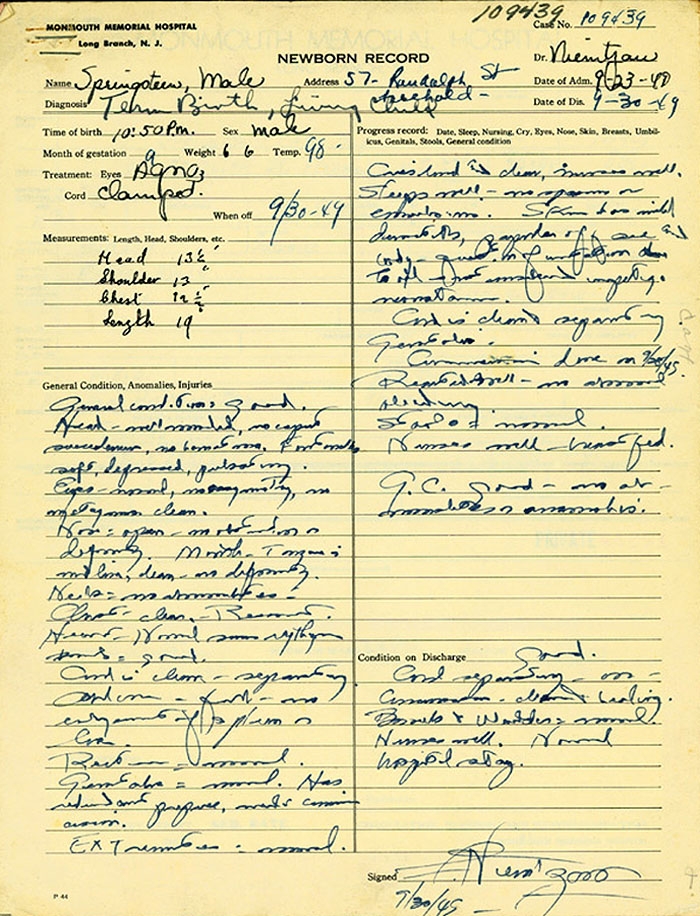 109439
MONMOUTH MEMORIAL HOSPITAL
Long Branch, N. J.
Case No. 109439
NEWBORN RECORD
Dr.
Name Springsteen, Male Address 57- Randolph St
Date of Adm. 9-23-49
Diagnosis Term Birth, Living Child Freehold-
Date of Dis. 9-30-49
Time of birth 10:50 P.m. Sex male
Month of gestation 9 Weight 6 6 Temp. 98-
Treatment: Eyes AgNO3
Cord clamped.
When off 9/30-49
Measurements: Length, Head, Shoulders, etc.
Head 13½"
Shoulder 13"
Chest 12½"
Length 19
General Condition, Anomalies, Injuries
General condition = good.
Head - well rounded, no caput
succedaneum, no hematoma. Fontanelles
soft, depressed, pulsating.
Eyes - normal, no asymmetry, no
clean.
Nose = open - no obstruction or
deformity. Mouth - Tongue is
midline, clean - no deformity.
Neck = no abnormalities -
Chest - clear. -
Heart - Normal rhythm
sounds = good.
Cord is clean - separating.
Abdomen - soft - no
enlargement of spleen or
liver.
Rectum = normal.
Genitalia = normal. Has
redundant prepuce, needs circum
cision.
Extremities = normal.
Progress record: Date, Sleep, Nursing, Cry, Eyes, Nose, Skin, Breasts, Umbilicus, Genitals, Stools, General condition
Cries loud and clear, nurses well.
Sleeps well - no spasms or
Skin has mild
dermatitis,
body - question of
to oil - not considered impetigo
neonatorum.
Cord is clean & separating.
Genitalia -
Circumcision done on 9/30/49.
well - no abnormal
bleeding.
Stools = normal.
Nurses well - breast fed.
G.C. good - no ab-
normalities or anomalies.
Condition on Discharge good.
Cord separating -
Circumcision - clean & healing.
Bowels & Bladder = normal
Nurses well. Normal
hospital stay.
Signed
9/30/49
P 44